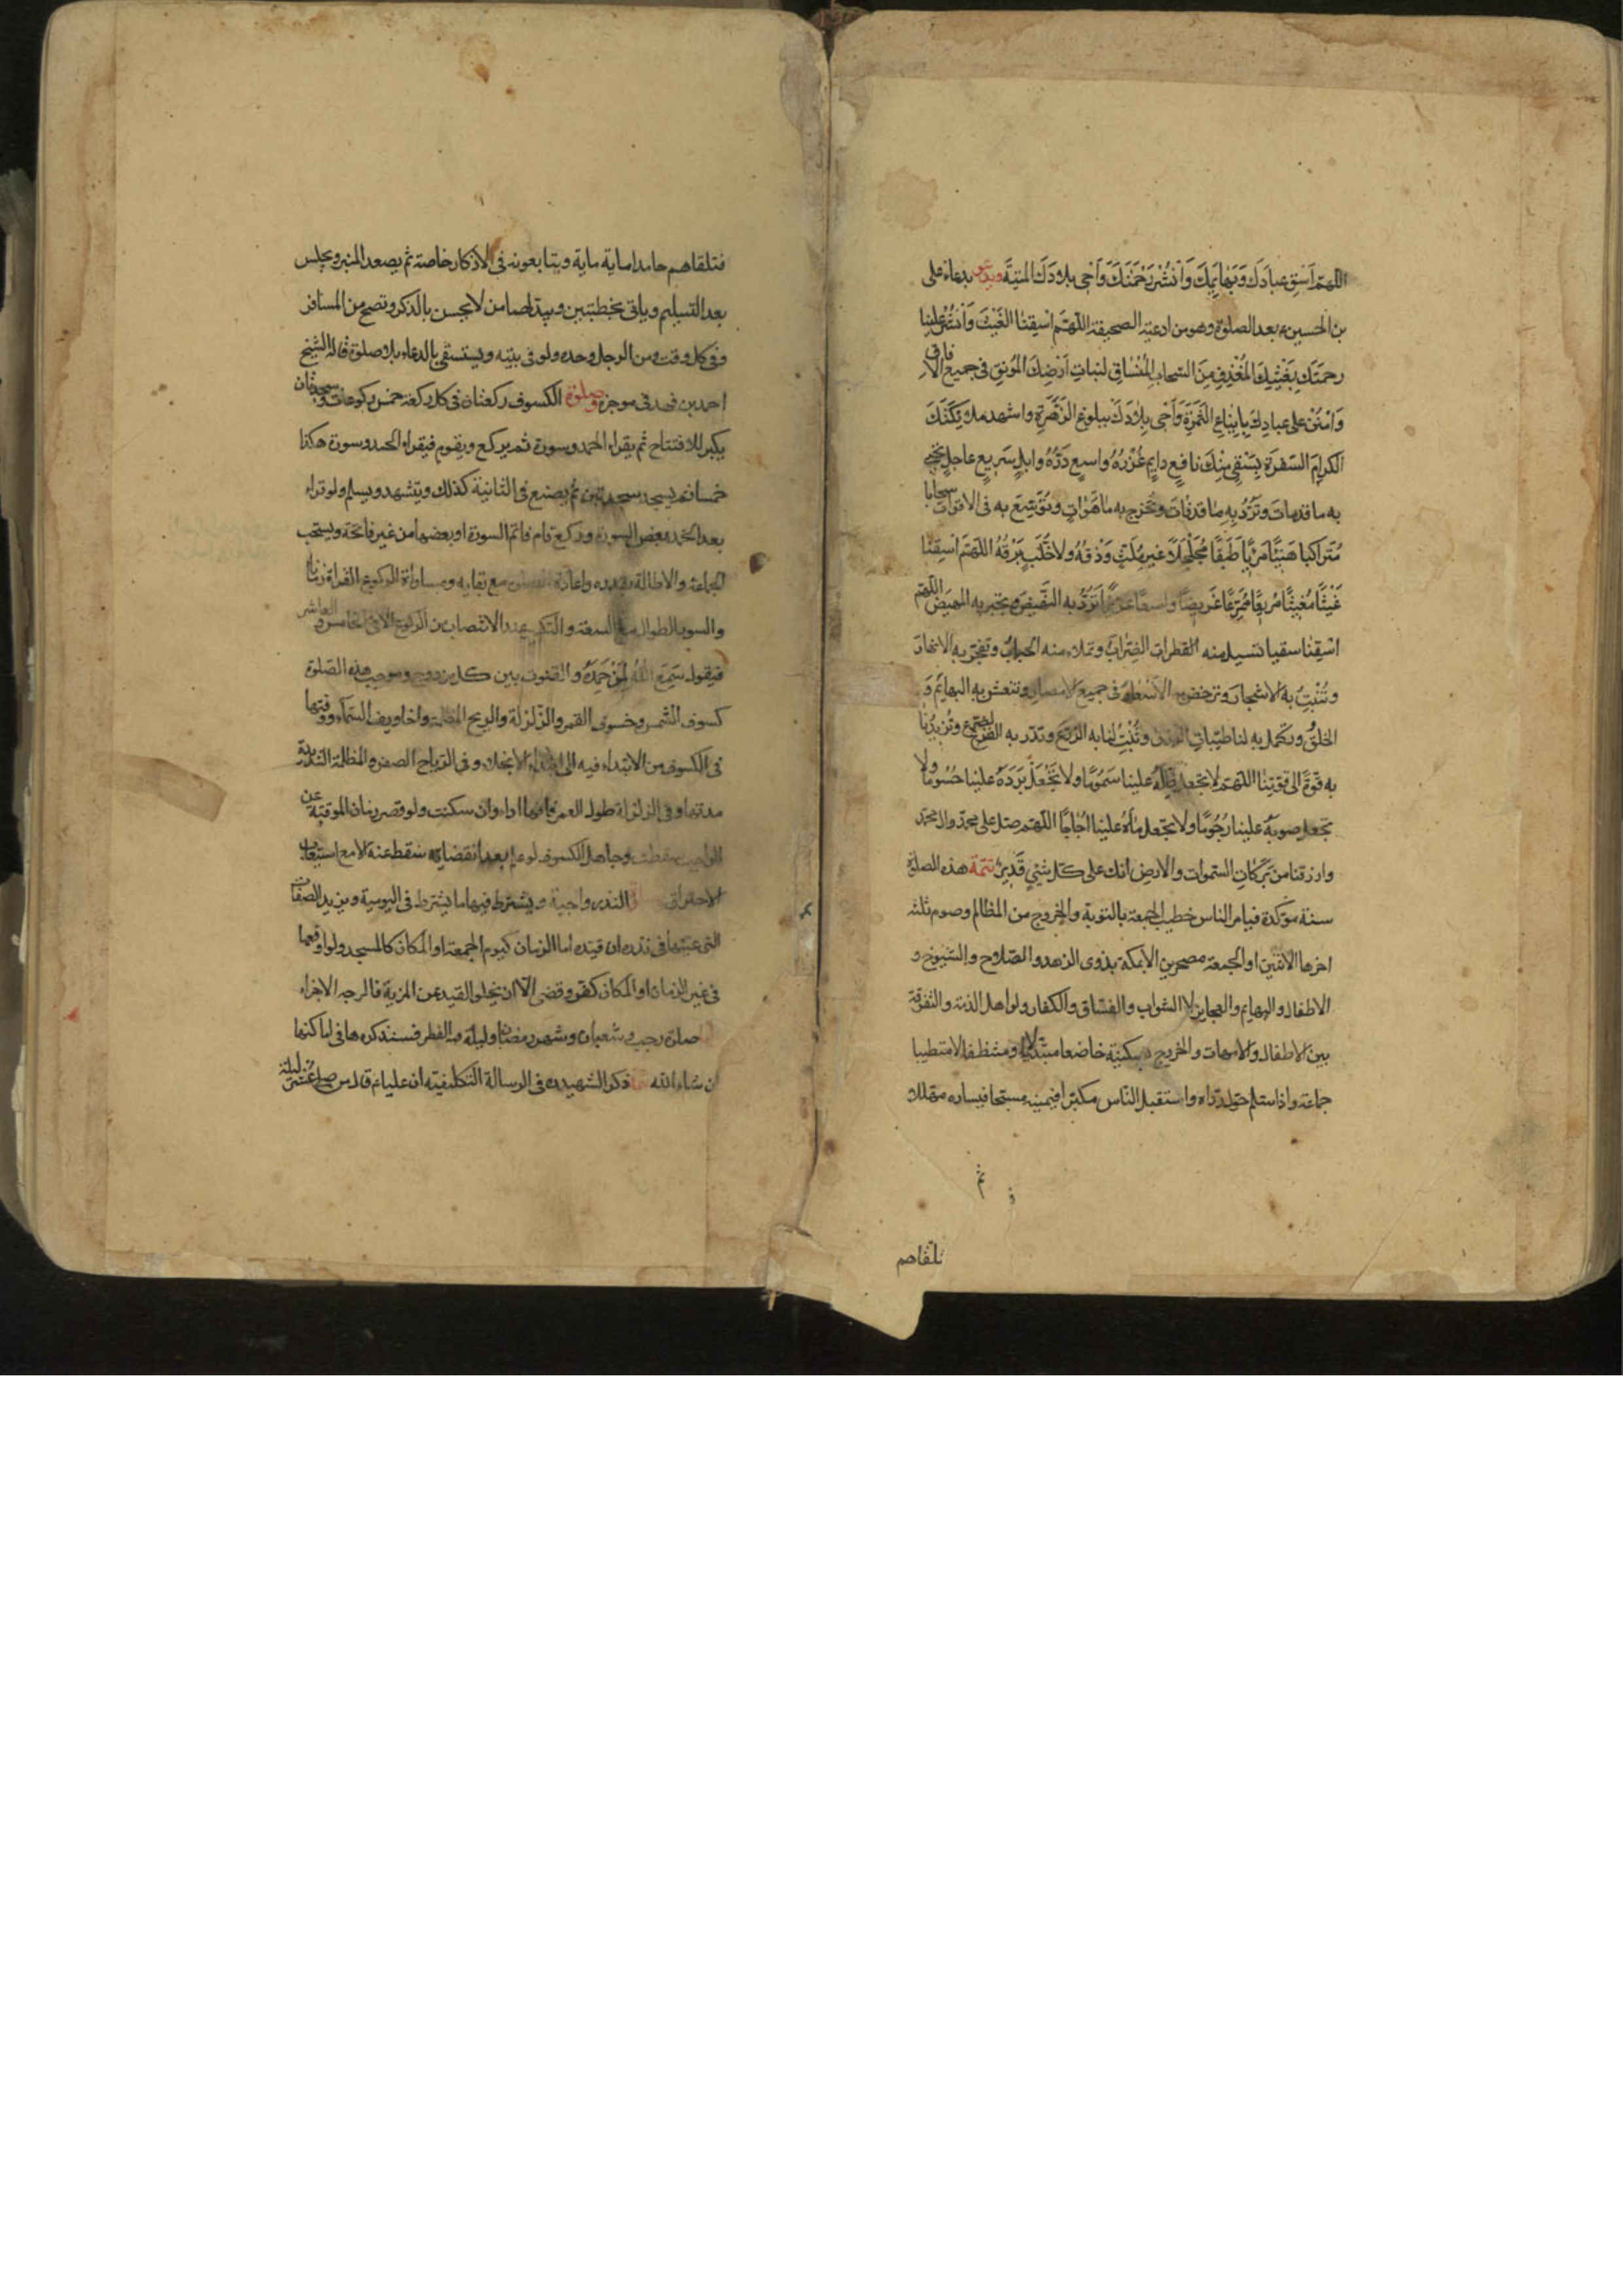 اللهم اسق عبادك وبهايمك وانشر رحمتك واحي بلادك الميتة ويدعى بدعاء على
بن الحسين ع بعد الصلوة وهو من ادعية الصحيفة اللهم اسقنا الغيث وانشر علينا
رحمتك بغيثك المغدق من السحاب المنساق لنبات ارضك المونق في جميع الافاق
وامنن على عبادك بايناع الثمرة واحي بلادك ببلوغ الزهرة واشهد ملايكتك
الكرام السفرة بسقي منك نافع دايم غزره واسع درره وابل سريع عاجل تحيي
به ما قد مات وترد به ما قد فات وتخرج به ما هو ات وتوسع به في الاقوات سحابا
متراكبا هنيئا مريا طبقا مجلجلا غير ملث ودقه ولا خلب برقه اللهم اسقنا
غيثا مغيثا مريعا ممرعا عريضا واسعا غزيرا ترد به النهيض وتجبر به المهيض اللهم
اسقنا سقيا تسيل منه الظراب وتملاء منه الجباب وتفجر به الانهار
وتنبت به الاشجار وترخص به الاسعار في جميع الامصار وتنعش به البهايم و
الخلق وتكمل به لنا طيبات الرزق وتنبت لنا به الزرع وتدر به الضرع وتزيدنا
به قوة الى قوتنا اللهم لا تجعل ظله علينا سموما ولا تجعل برده علينا حسوما ولا
تجعل صوبه علينا رجوما ولا تجعل ماءه علينا اجاجا اللهم صل على محمد وال محمد
وارزقنا من بركات السموات والارض انك على كل شيء قدير تتمة هذه الصلوة
سنة موكدة فيامر الناس خطيب الجمعة بالتوبة والخروج من المظالم وصوم ثلثة
اخرها الاثنين او الجمعة مصحرين الا بمكة بذوى الزهد والصلاح والشيوخ و
الاطفال والبهايم والعجايز لا الشواب والفساق والكفار ولو اهل الذمة والتفرقة
بين الاطفال والامهات والخروج بسكينة خاضعا مبتذلا ومتنظفا لا متطيبا
جماعة واذا سلم حول رداه واستقبل الناس مكبرا فيمينه مسبحا فيساره مهللا و
ثم
تلقاهم
فتلقاهم حامدا ماية ماية ويتابعونه في الاذكار خاصة ثم يصعد المنبر ويجلس
بعد التسليم وياتى بخطبتين ويبدلهما من لا يحسن بالذكر وتصح من المسافر
وفي كل وقت ومن الرجل وحده ولو في بيته ويستسقى بالدعاء بلا صلوة قاله الشيخ
احمد بن فهد في موجزه وصلوة الكسوف ركعتان في كل ركعة خمس ركوعات وسجدتان
يكبر للافتتاح ثم يقراء الحمد وسورة ثم يركع ويقوم فيقراء الحمد وسورة هكذا
خمسا ثم يسجد سجدتين ثم يصنع في الثانية كذلك ويتشهد ويسلم ولو قراء
بعد الحمد بعض السورة وركع قام فاتم السورة او بعضها من غير فاتحة ويستحب
الجماعة والاطالة بقدره واعادة مع بقايه ومساواة الركوع القراة زمانا
والسور الطوال مع السعة والتكبير عند الانتصاب من الركوع الا في الخامس والعاشر
فيقول سمع الله لمن حمده والقنوت بين كل مزدوج وموجب هذه الصلوة
كسوف الشمس وخسوف القمر والزلزلة والريح المظلمة واخاويف السماء ووقتها
في الكسوف من الابتداء فيه الى ابتداء الانجلاء وفي الرياح الصفر والمظلمة الشديدة
مدتها وفي الزلزلة طول العمر فانها اداء وان سكنت ولو قصر زمان الموقتة عن
الواجب سقطت وجاهل الكسوف لو علم بعد انقضايه سقط عنه الا مع استيعاب
الاحتراق النذر واجبة ويشترط فيها ما يشترط في اليومية ويزيد الصفات
التى عينها في نذره ان قيده اما الزمان كيوم الجمعة او المكان كالمسجد ولو اوقعها
في غير الزمان او المكان كفر وقضى الا ان يخلو القيد عن المزية فالوجه الاجزاء
صلوة رجب وشعبان وشهر رمضان وليلة الفطر فسنذكرها في اماكنها
ان شاء الله ذكر الشهيد ره في الرسالة التكليفية ان عليا ع قال من صلى عشر ليلة